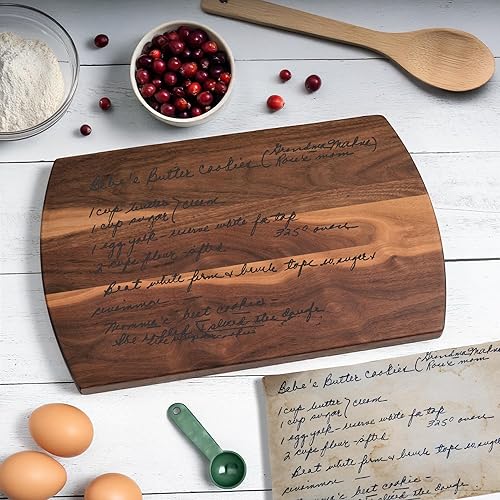 Bebe's Butter Cookies (Grandma
Roux's mom)
1 cup butter } cream
1 cup sugar
1 egg yolk - reserve white for top
2 cups flour sifted 325° oven
Beat white firm & brush tops sugar &
cinnamon
Momma's best cookie -
She rolled & sliced the dough
Bebe's Butter Cookies (Grandma
Roux's mom
1 cup butter } cream
1 cup sugar
1 egg yolk - reserve white for top
2 cups flour sifted 325° oven
Beat white firm & brush tops sugar &
cinnamon
Momma's best cookie -